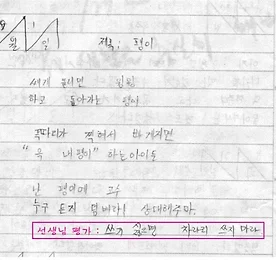 월 1 일
제목: 팽이
쎄게 돌리면 윙윙
하고 돌아가는 팽이
꼭다리가 찍혀서 빠개지면
"윽 내팽이" 하는아이들
난 팽이에 고수
누구 든지 덤벼라! 상대해주마.
선생님 평가: 쓰기 싫으면 차라리 쓰지 마라